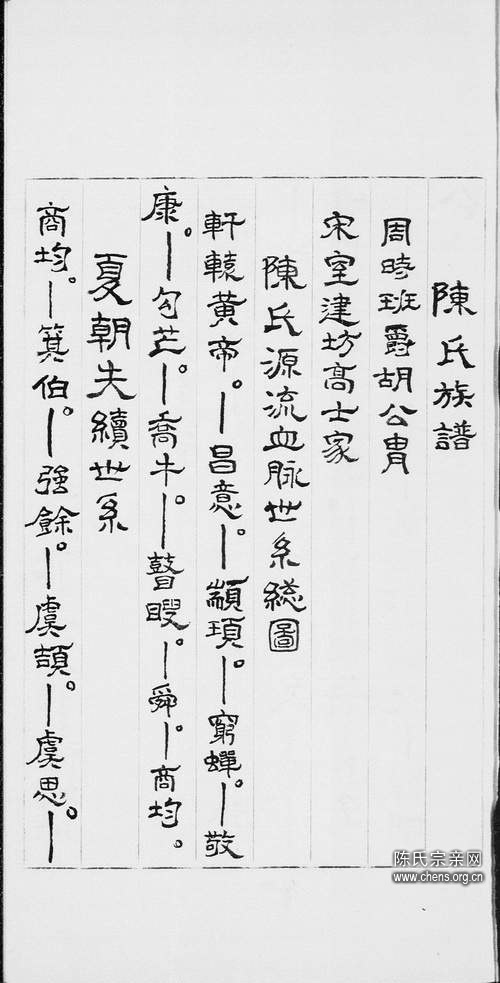 陳氏族譜
周時班爵胡公胄
宋室建坊高士家
陳氏源流血脉世系總圖
軒轅黃帝。—昌意。—顓頊。—窮蟬。—敬
康。—勾芒。—喬牛。—瞽瞍。—舜。—商均。
夏朝失續世系
商均。—箕伯。—強餘。—虞頡。—虞思。—
陈氏宗亲网
www.chens.org.cn